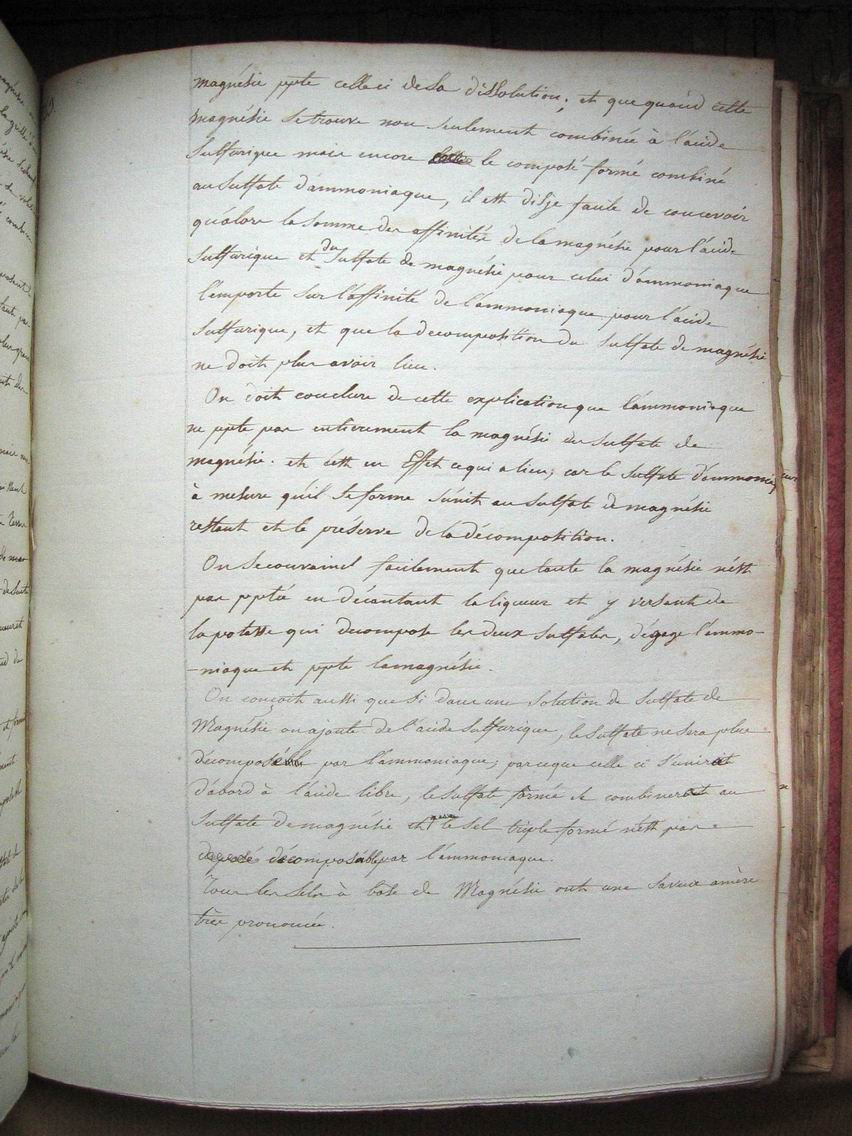 magnésie ppte celle ci de sa dissolution; et que quand cette
magnésie se trouve non seulement combinée à l'acide
Sulfurique mais encore le composé formé combiné
au Sulfate d'ammoniaque, il est disje facile de concevoir
qu'alors la Somme des affinités de la magnésie pour l'acide
Sulfurique et du Sulfate de magnésie pour celui d'ammoniaque
l'emporte sur l'affinité de l'ammoniaque pour l'acide
Sulfurique, et que la decomposition du Sulfate de magnésie
ne doit plus avoir lieu.
On doit conclure de cette explication que l'ammoniaque
ne ppte pas entièrement la magnésie du Sulfate de
magnésie. et c'est en Effet ce qui a lieu; car le Sulfate d'ammoniaque
à mesure qu'il se forme s'unit au sulfate de magnésie
restant et le préserve de la décomposition.
On se convainct facilement que toute la magnésie n'est
pas pptée en décantant la liqueur et y versant de
la potasse qui decompose les deux Sulfates, dégage l'ammo-
-niaque et ppte la magnésie.
On conçoit aussi que Si dans une Solution de Sulfate de
Magnésie on ajoute de l'acide Sulfurique, le Sulfate ne sera plus
décomposé par l'ammoniaque, parceque celle ci s'unirait
d'abord à l'acide libre, le Sulfate formé se combinerait au
Sulfate de magnésie et que le Sel triple formé n'est pas
décomposable par l'ammoniaque.
Tous les Sels à base de Magnésie ont une Saveur amère
très prononcée.